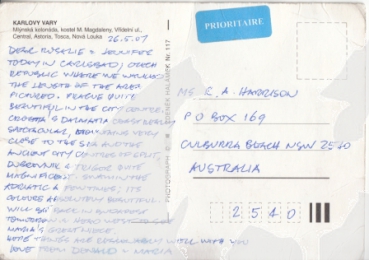 KARLOVY VARY
Mlýnská kolonáda, kostel M. Magdaleny, Vřídelní ul.,
Central, Astoria, Tosca, Nová Louka
26.5.07
PRIORITAIRE
DEAR & JENNIFER
TODAY IN CARLSBAD, CZECH
REPUBLIC WHERE WE WALKED
THE LENGTH OF THE AREA
PICTURED. PRAGUE QUITE
BEAUTIFUL IN THE CITY CENTRE
CROATIA & DALMATIA COAST REALLY
SPECTACULAR, MOUNTAINS VERY
CLOSE TO THE SEA AND THE
ANCIENT CITY CENTRES OF SPLIT,
DUBROVNIK & TROGIR QUITE
MAGNIFICENT. SWAM IN THE
ADRIATIC A FEW TIMES; ITS
COLOURS ABSOLUTELY BEAUTIFUL
WILL BE BACK IN BUDAPEST
TOMORROW
MARIA'S
HOPE THINGS ARE WELL WITH YOU
LOVE FROM DONALD & MARIA
MS. R. A. HARRISON
PO BOX 169
CULBURRA BEACH NSW 2540
AUSTRALIA
2540